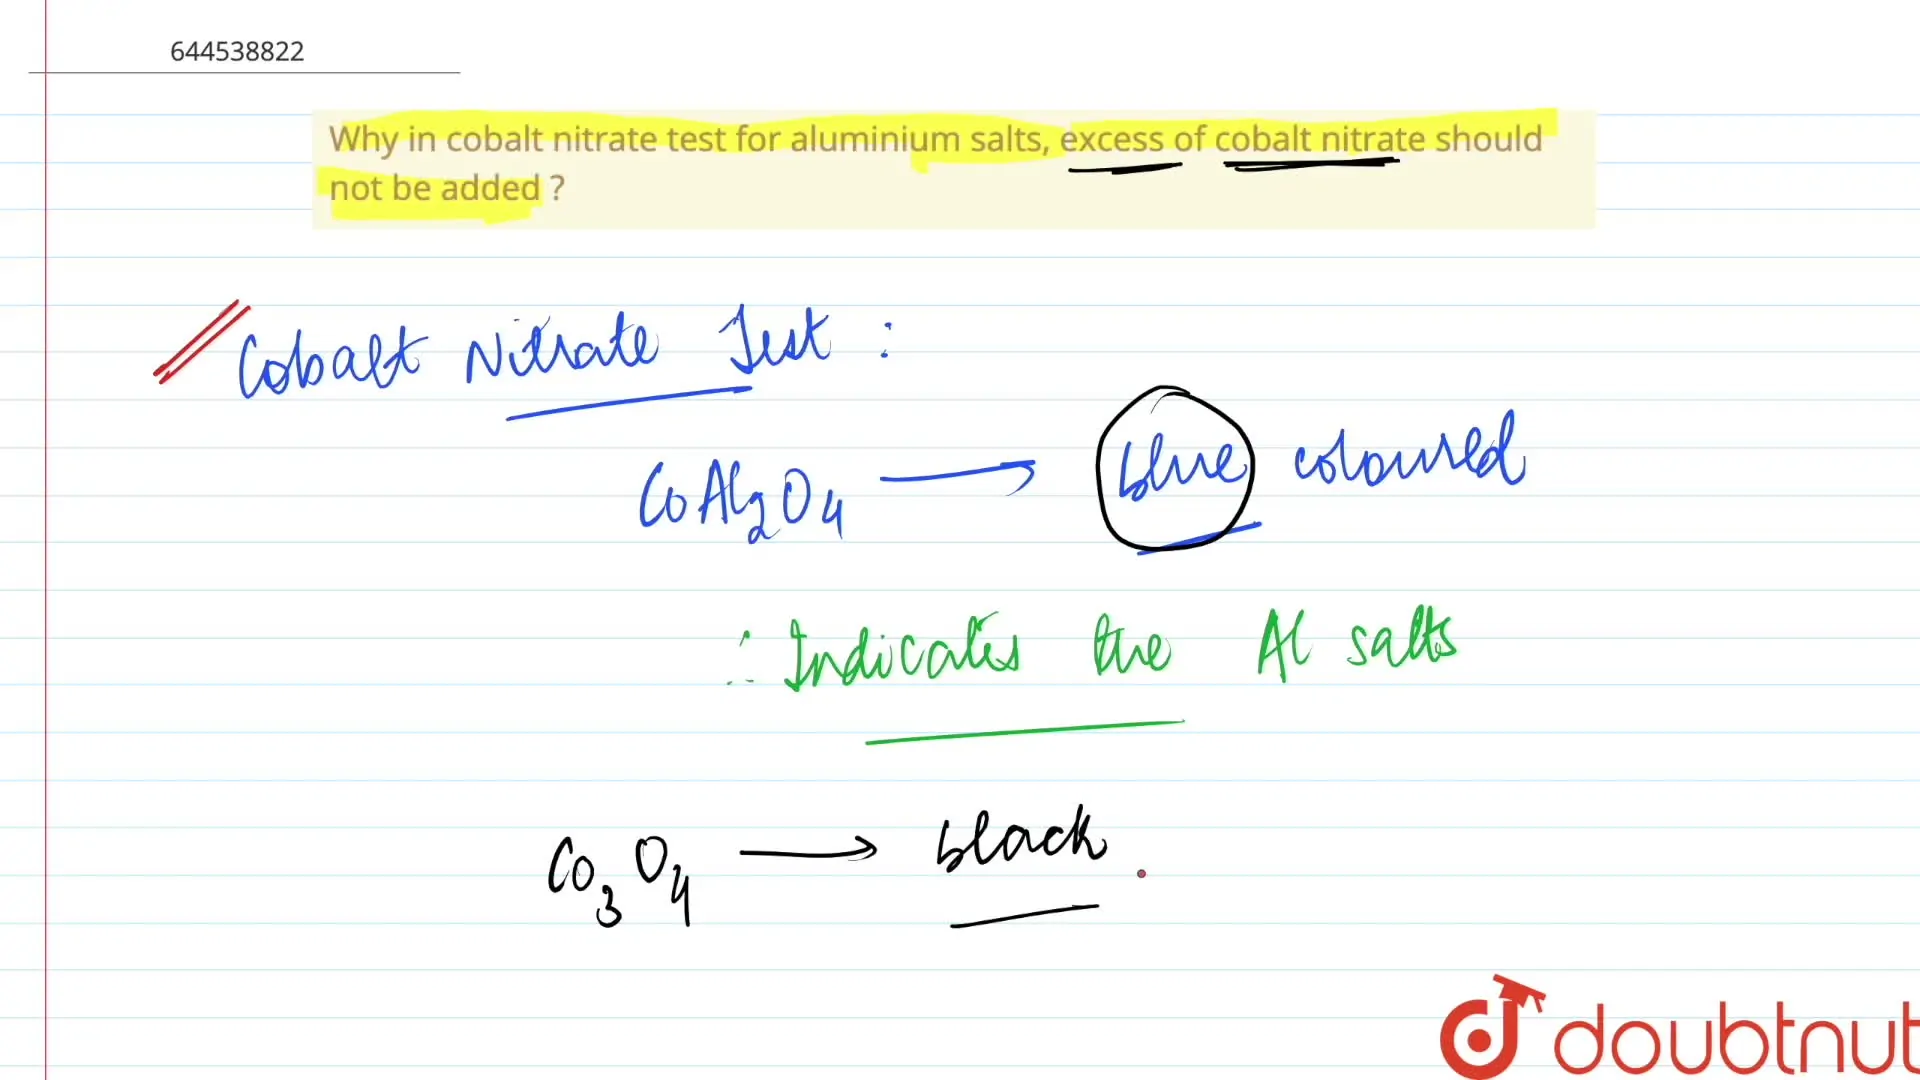 644538822
Why in cobalt nitrate test for aluminium salts, excess of cobalt nitrate should
not be added ?
Cobalt Nitrate Test :
CoAl2O4 → blue coloured
∴ Indicates the Al salts
Co3O4 → black
doubtnut